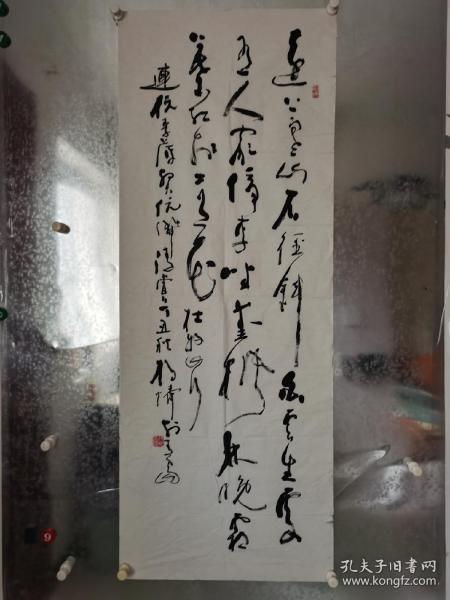 遠上寒山石徑斜白雲生處
有人家停車坐愛楓林晚霜
葉红於二月花 杜牧山行
清賞丁丑秋
9
孔夫子旧书网
www.kongfz.com